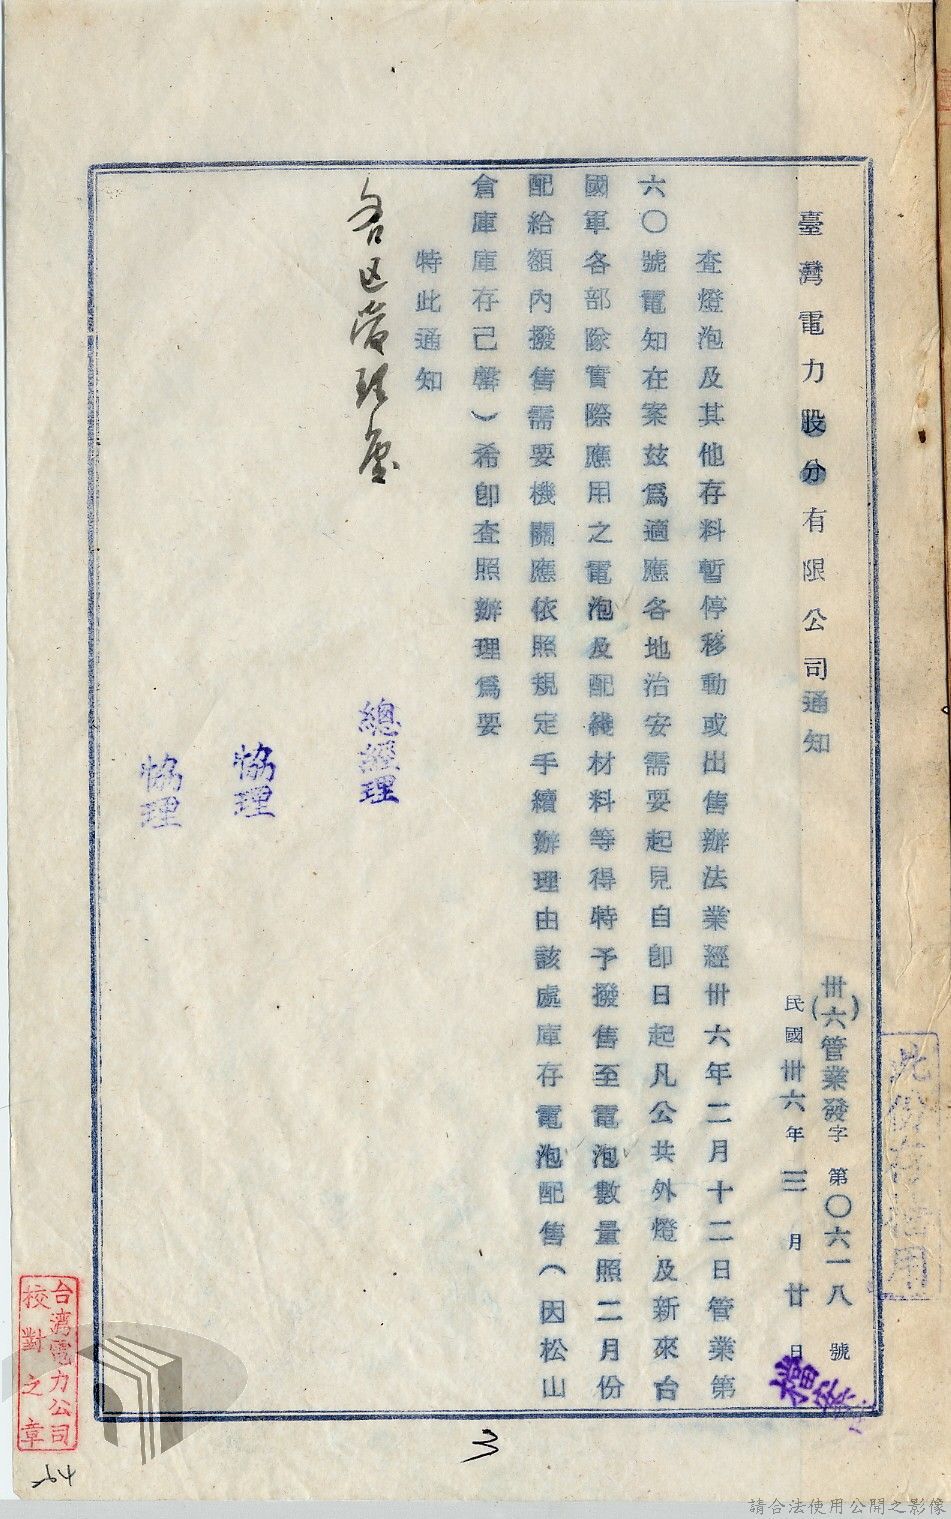 臺灣電力股分有限公司通知
卅(六)管業發字第〇六一八號
民國卅六年三月廿日
檔案
查燈泡及其他存料暫停移動或出售辦法業經卅六年二月十二日管業第
六〇號電知在案茲為適應各地治安需要起見自卽日起凡公共外燈及新來台
國軍各部隊實際應用之電泡及配綫材料等得特予撥售至電泡數量照二月份
配給額內撥售需要機關應依照規定手續辦理由該處庫存電泡配售(因松山
倉庫庫存己罄)希卽查照辦理為要
特此通知
各区管理處
總經理
協理
協理
台湾電力公司
校對之章
3
54
請合法使用公開之影像